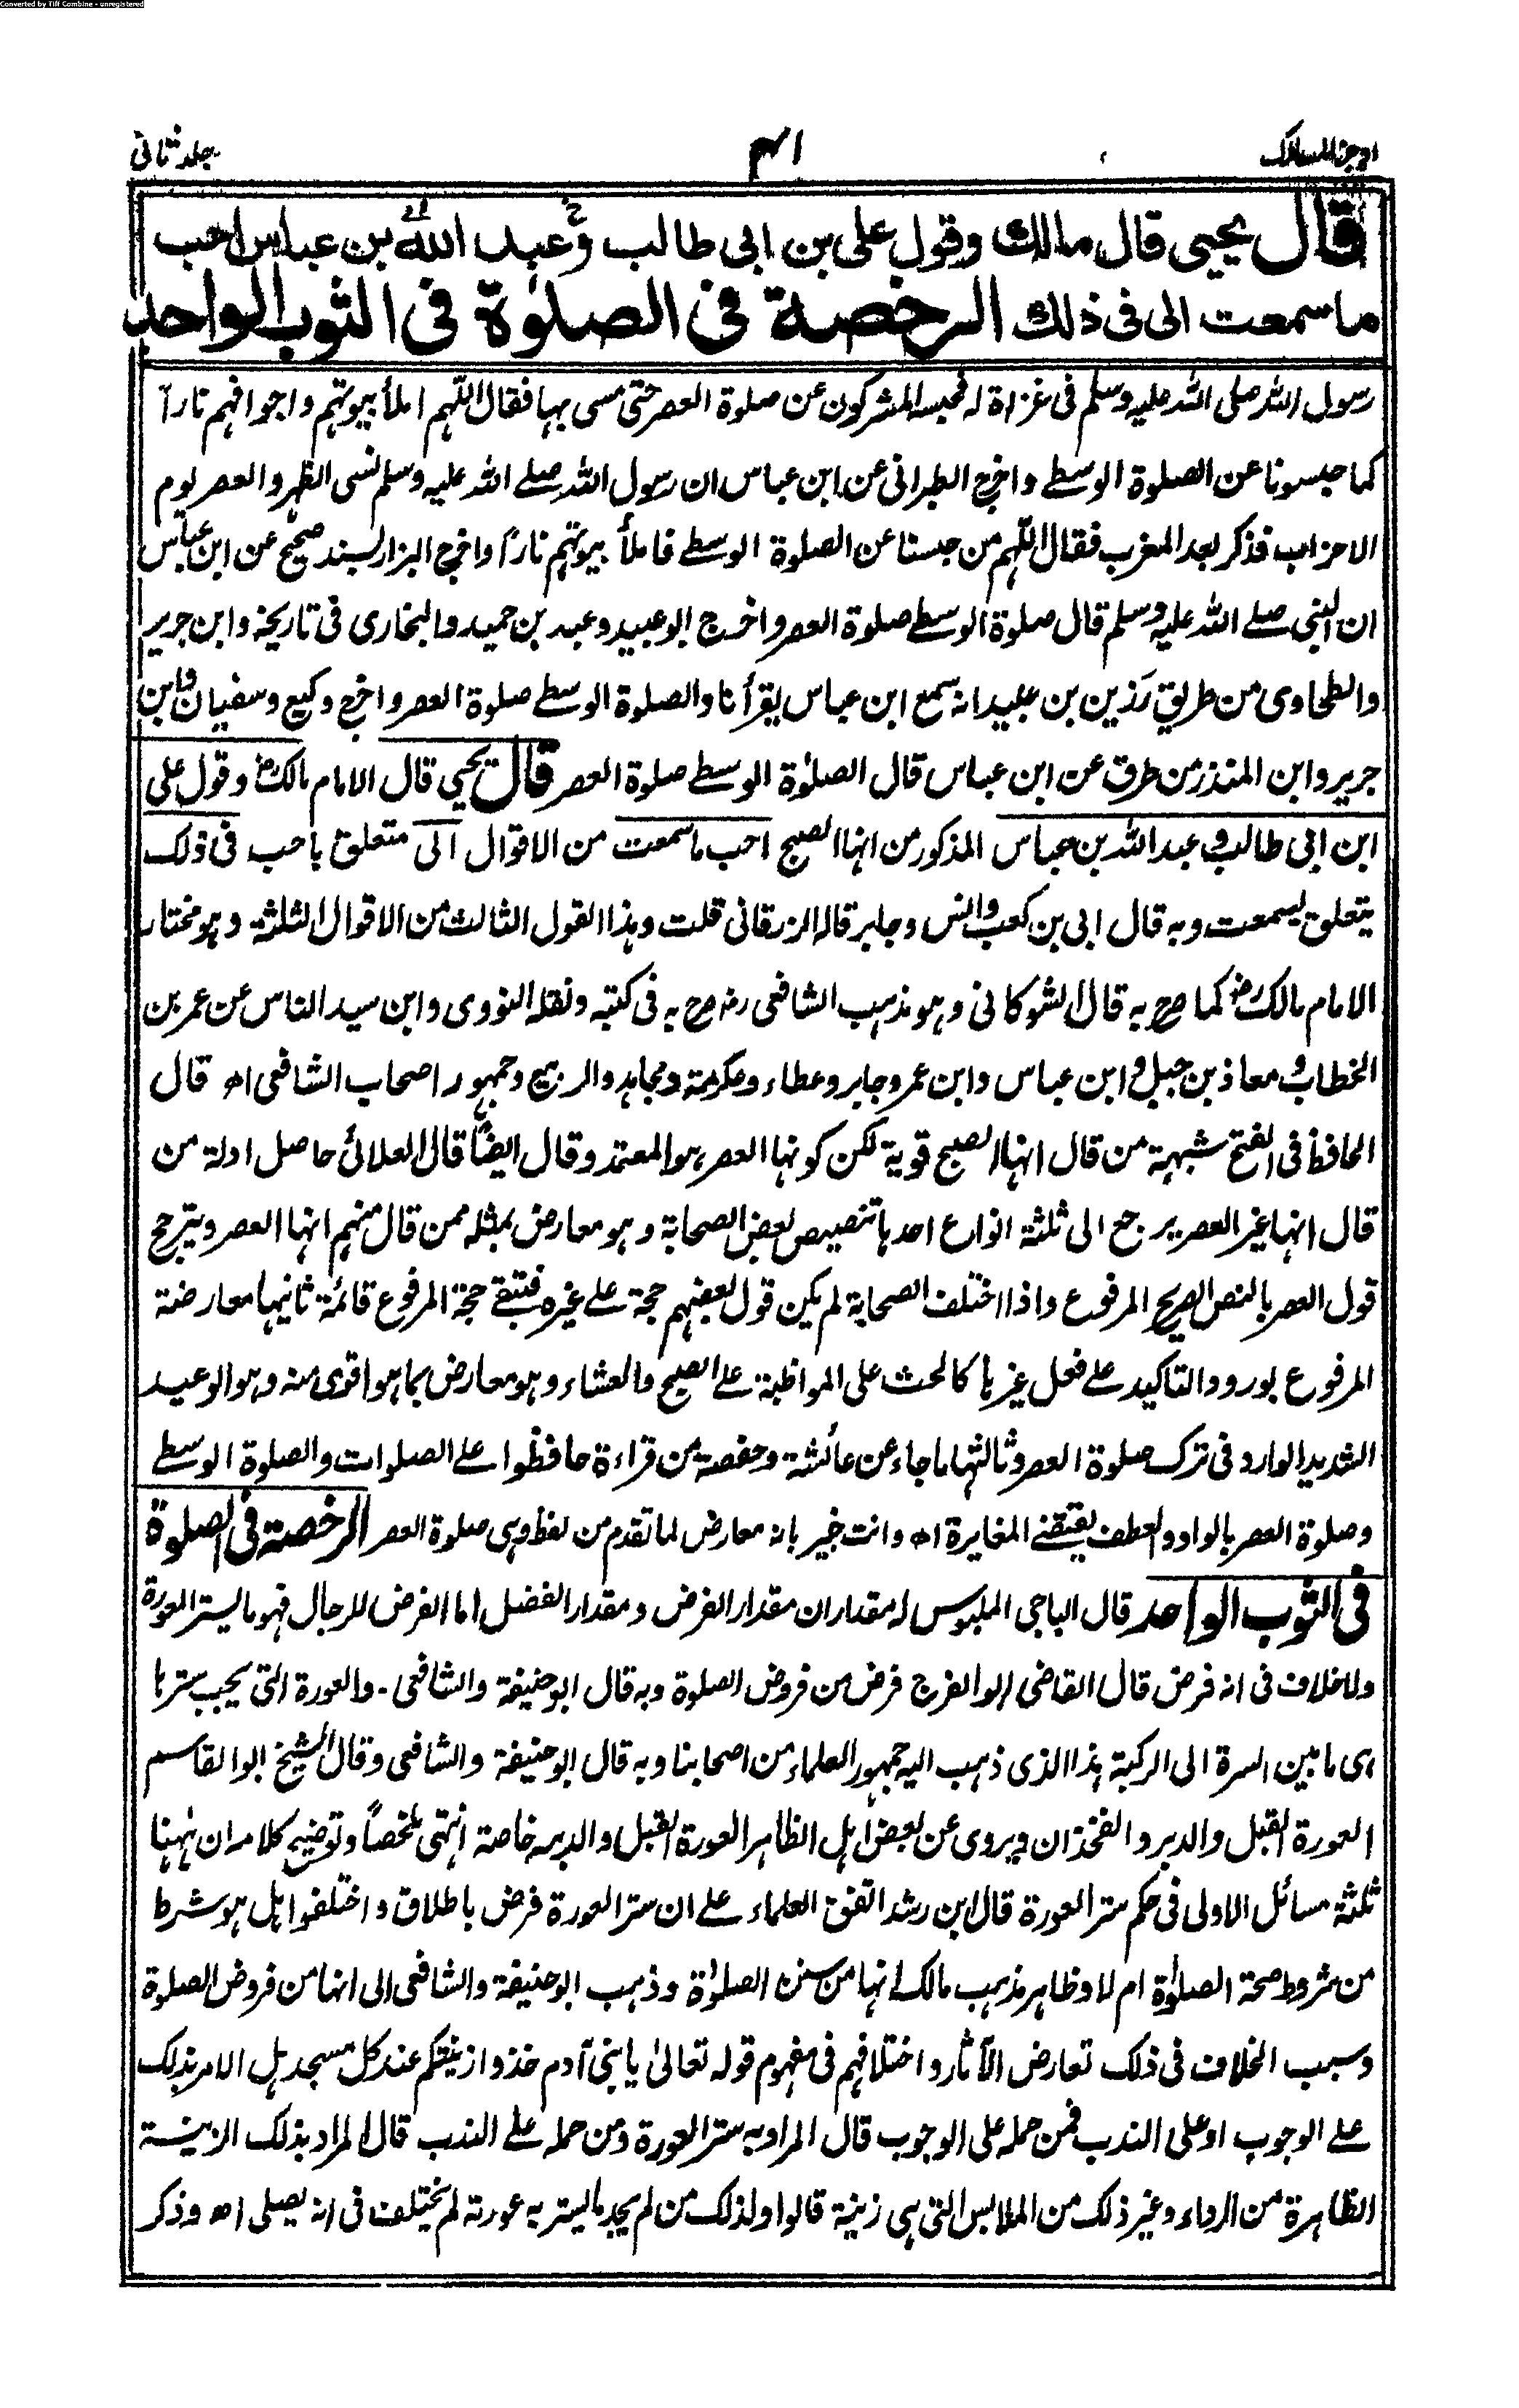 Converted by Tiff Combine - unregistered
اوجز المسالك
۴۱
جلد ثانی
قال يحيى قال مالك وقول على بن ابى طالب وعبد الله بن عباس احب
ما سمعت الى فى ذلك الرخصة فى الصلوٰة فى الثوب الواحد
رسول الله صلى الله عليه وسلم فى غزاة له فحبسه المشركون عن صلوة العصر حتى مسى بها فقال اللّٰهم املأ بيوتهم واجوافهم ناراً
كما حبسونا عن الصلوة الوسطے واخرج الطبرانى عن ابن عباس ان رسول الله صلے الله عليه وسلم نسى الظهر والعصر يوم
الاحزاب فذكر بعد المغرب فقال اللّٰهم من حبسنا عن الصلوة الوسطے فاملأ بيوتهم ناراً واخرج البزار بسند صحيح عن ابن عباس
ان النبى صلے الله عليه وسلم قال صلوة الوسطے صلوة العصر واخرج ابو عبيد وعبد بن حميد والبخارى فى تاريخه وابن جرير
والطحاوى من طريق رزين بن عبيد انه سمع ابن عباس يقرأنا والصلوة الوسطے صلوة العصر واخرج وكيع وسفيان وابن
جرير وابن المنذر من طرق عن ابن عباس قال الصلوٰة الوسطے صلوة العصر قال يحيى قال الامام مالك رح وقول على
ابن ابى طالب و عبد الله بن عباس المذكور من انها الصبح احب ما سمعت من الاقوال الى متعلق باحب فى ذلك
يتعلق بسمعت وبه قال ابى بن كعب وانس وجابر قاله الزرقانى قلت وهذا القول الثالث من الاقوال الثلثة وهو مختار
الامام مالك رض كما صرح به قال الشوكانى وهو مذهب الشافعى رض صرح به فى كتبه ونقله النووى وابن سيد الناس عن عمر بن
الخطاب و معاذ بن جبل و ابن عباس وابن عمر وجابر وعطاء وعكرمة ومجاهد والربيع وجمهور اصحاب الشافعى اھ قال
الحافظ فى الفتح شبهة من قال انها الصبح قوية لكن كونها العصر هو المعتمد وقال ايضاً قال العلائى حاصل ادلة من
قال انها غير العصر يرجع الى ثلثة انواع احدها تنصيص بعض الصحابة وهو معارض بمثله ممن قال منهم انها العصر ويترجح
قول العصر بالنص الصريح المرفوع واذا اختلف الصحابة لم يكن قول بعضهم حجة علے غيره فتبقے حجة المرفوع قائمة ثانيها معارضة
المرفوع بورود التاكيد علے فعل غيرها كالحث على المواظبة علے الصبح والعشاء وهو معارض بما هو اقوى منه وهو الوعيد
الشديد الوارد فى ترك صلوة العصر وثالثها ما جاء عن عائشة وحفصة من قراءة حافظوا علے الصلوات والصلوة الوسطے
وصلوة العصر بالواو والعطف يقتضے المغايرة اھ وانت خبير بانه معارض لما تقدم من لفظ وهى صلوة العصر الرخصة فى الصلوة
فى الثوب الواحد قال الباجى الملبوس له مقداران مقدار الفرض ومقدار الفضل اما الفرض للرجال فهو ما يستر العورة
ولا خلاف فى انه فرض قال القاضى ابو الفرج فرض من فروض الصلوة وبه قال ابو حنيفة والشافعى ـ والعورة التى يجب سترها
هى ما بين السرة الى الركبة هذا الذى ذهب اليه جمهور العلماء من اصحابنا وبه قال ابو حنيفة والشافعى وقال الشيخ ابو القاسم
العورة القبل والدبر والفخذان ويروى عن بعض اهل الظاهر العورة القبل والدبر خاصة انتهى ملخصاً وتوضيح كلامه ان ههنا
ثلثة مسائل الاولى فى حكم ستر العورة قال ابن رشد اتفق العلماء علے ان ستر العورة فرض باطلاق واختلفوا هل هو شرط
من شروط صحة الصلوٰة ام لا وظاهر مذهب مالك انها من سنن الصلوٰة وذهب ابو حنيفة والشافعى الى انها من فروض الصلوة
وسبب الخلاف فى ذلك تعارض الآثار واختلافهم فى مفهوم قوله تعالىٰ يا بنى آدم خذوا زينتكم عند كل مسجد هل الامر بذلك
علے الوجوب او على الندب فمن حمله على الوجوب قال المراد به ستر العورة ومن حمله علے الندب قال المراد بذلك الزينة
الظاهرة من الرداء وغير ذلك من الملابس التى هى زينة قالوا ولذلك من لم يجد ما يستر به عورته لم يختلف فى انه يصلى اھ وذكر